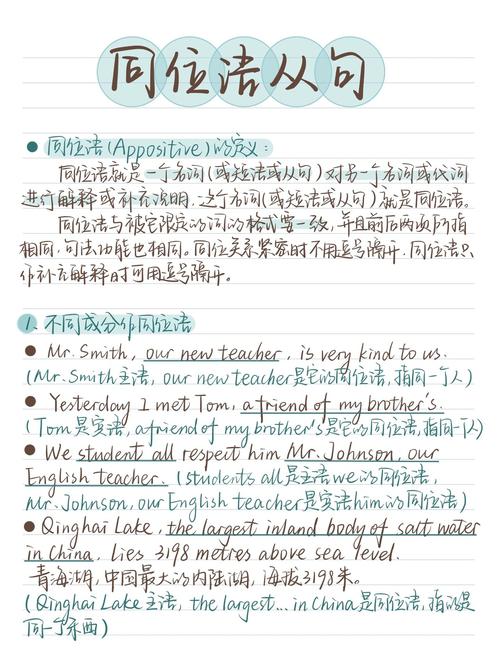 同位语从句
● 同位语(Appositive)的定义:
同位语就是一个名词(或短语或从句)对另一个名词或代词
进行解释或补充说明.这个名词(或短语或从句)就是同位语。
同位语与被它限定的词的格式要一致,并且前后两项所指
相同,句法功能也相同。同位关系紧密时不用逗号隔开.同位语只
作补充解释时可用逗号隔开。
1. 不同成分作同位语
● Mr. Smith, our new teacher, is very kind to us.
(Mr. Smith主语, our new teacher是它的同位语,指同一个人)
● Yesterday I met Tom, a friend of my brother's.
(Tom是宾语, a friend of my brother's是它的同位语,指同一人)
● We student all respect him Mr. Johnson, our
English teacher. (students all是主语we的同位语,
Mr. Johnson, our English teacher是宾语him的同位语)
● Qinghai Lake, the largest inland body of salt water
in China. Lies 3198 metres above sea level.
青海湖,中国最大的内陆湖,海拔3198米。
(Qinghai Lake主语, the largest... in China是同位语,指的是
同一个东西)